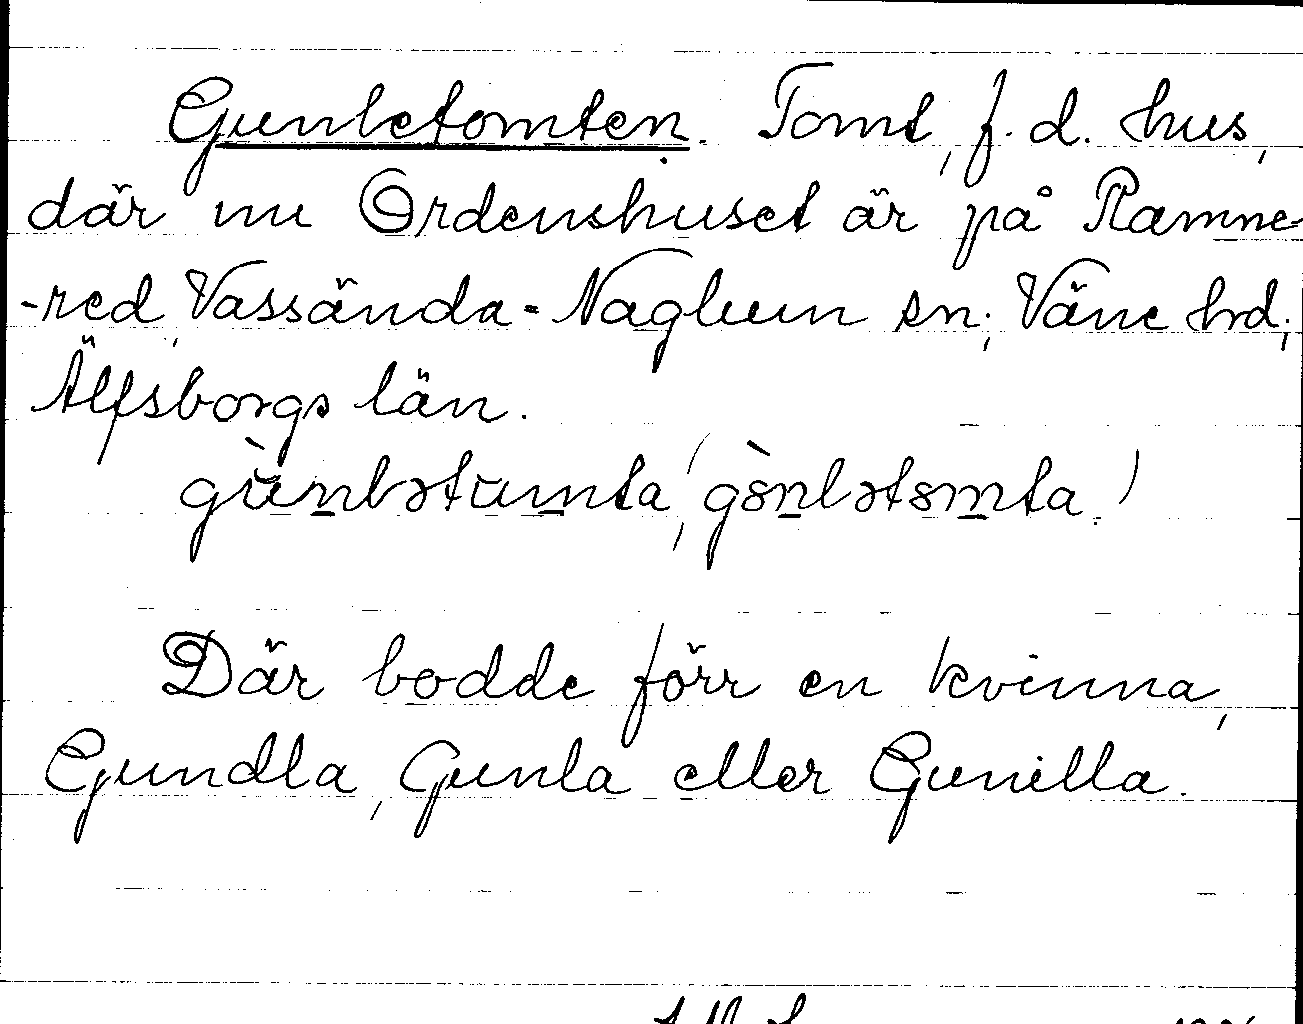 Gunletomten. Tomt, f. d. hus,
där nu Ordenshuset är på Ramne-
-red, Vassända-Naglum sn; Väne hd;
Älfsborgs län.
gùnlətumta, (gònlətomta.)
Där bodde förr en kvinna,
Gundla, Gunla eller Gunilla.